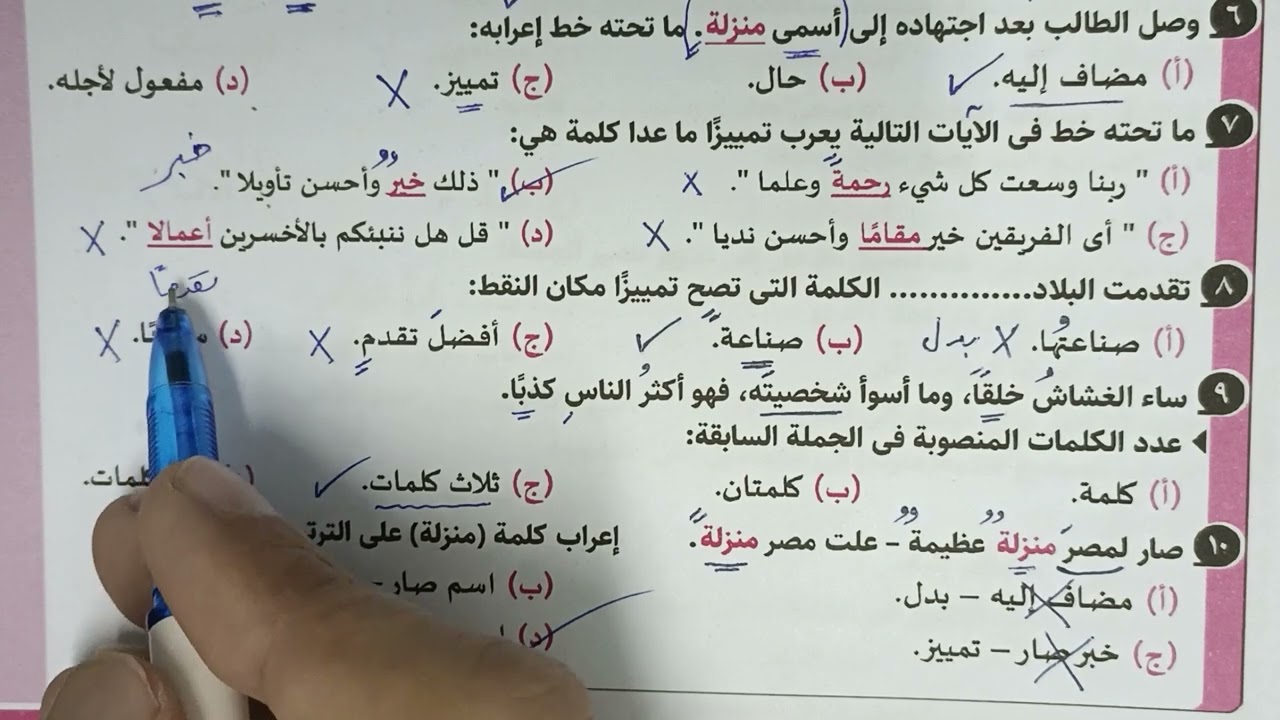 ٦ وصل الطالب بعد اجتهاده إلى (أسمى منزلة). ما تحته خط إعرابه:
(أ) مضاف إليه. (ب) حال. (ج) تمييز. (د) مفعول لأجله.
٧ ما تحته خط فى الآيات التالية يعرب تمييزًا ما عدا كلمة هي:
خبر
(أ) " ربنا وسعت كل شيء رحمةً وعلما ". (ب) " ذلك خيرٌ وأحسن تأويلا ".
(ج) " أى الفريقين خير مقامًا وأحسن نديا ". (د) " قل هل ننبئكم بالأخسرين أعمالا ".
٨ تقدمت البلاد.............. الكلمة التى تصح تمييزًا مكان النقط:
(أ) صناعتُها. بدل (ب) صناعةً. (ج) أفضلَ تقدمٍ. (د)
٩ ساء الغشاشُ خلقًا، وما أسوأ شخصيتَه، فهو أكثرُ الناسِ كذبًا.
عدد الكلمات المنصوبة فى الجملة السابقة:
(أ) كلمة. (ب) كلمتان. (ج) ثلاث كلمات.
١٠ صار لمصرَ منزلةٌ عظيمةٌ – علت مصر منزلةً. إعراب كلمة (منزلة) على
(أ) مضاف إليه – بدل. (ب) اسم صار –
(ج) خبر صار – تمييز. (د)